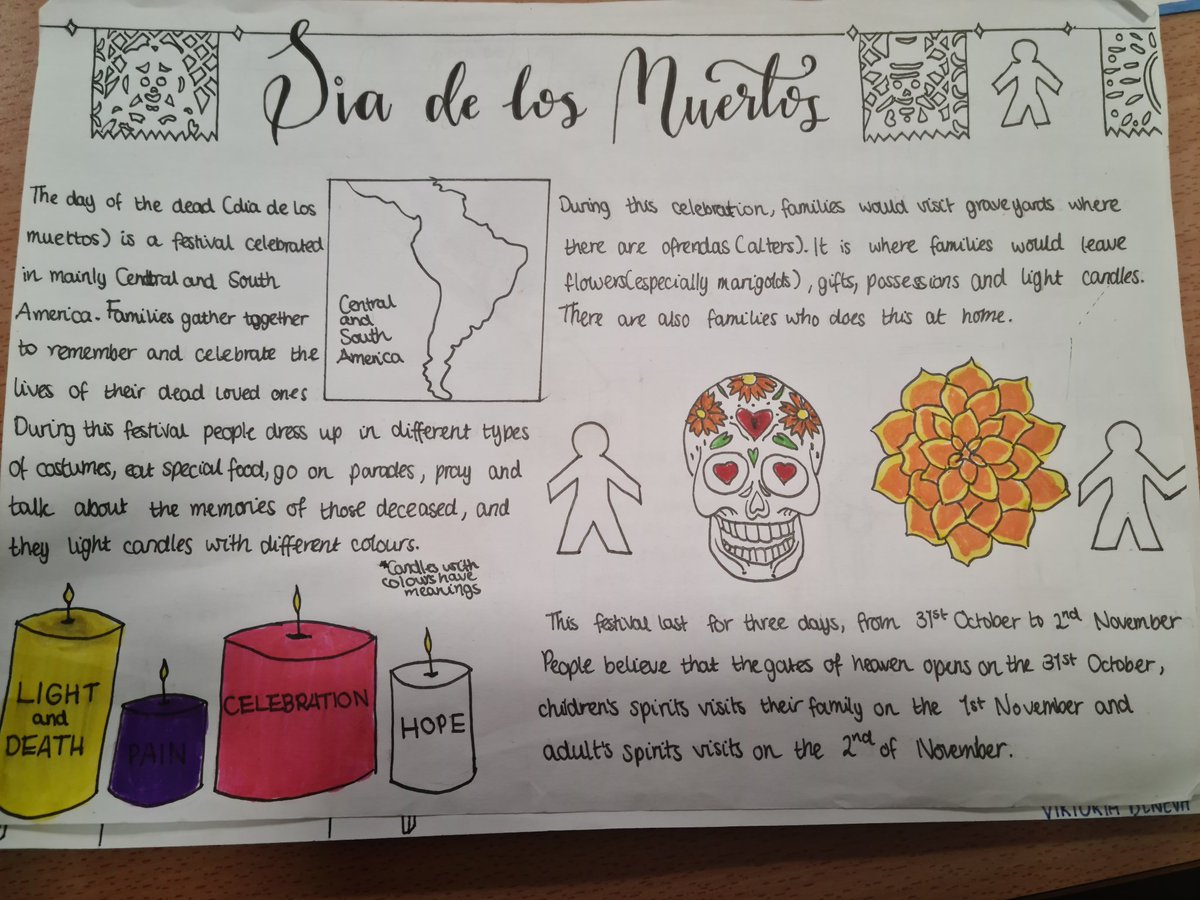 Dia de los Muertos
The day of the dead (dia de los
muettos) is a festival celebrated
in mainly Central and South
America. Families gather together
to remember and celebrate the
lives of their dead loved ones
During this festival people dress up in different types
of costumes, eat special food, go on parades, pray and
talk about the memories of those deceased, and
they light candles with different colours.
*Candles with
colours have
meanings
Central
and
South
America
LIGHT
and
DEATH
PAIN
CELEBRATION
HOPE
During this celebration, families would visit graveyards where
there are ofrendas (alters). It is where families would leave
flowers(especially marigolds), gifts, possessions and light candles.
There are also families who does this at home.
This festival last for three days, from 31st October to 2nd November
People believe that the gates of heaven opens on the 31st October,
children's spirits visits their family on the 1st November and
adult's spirits visits on the 2nd of November.
VIKTORIA DENEVA